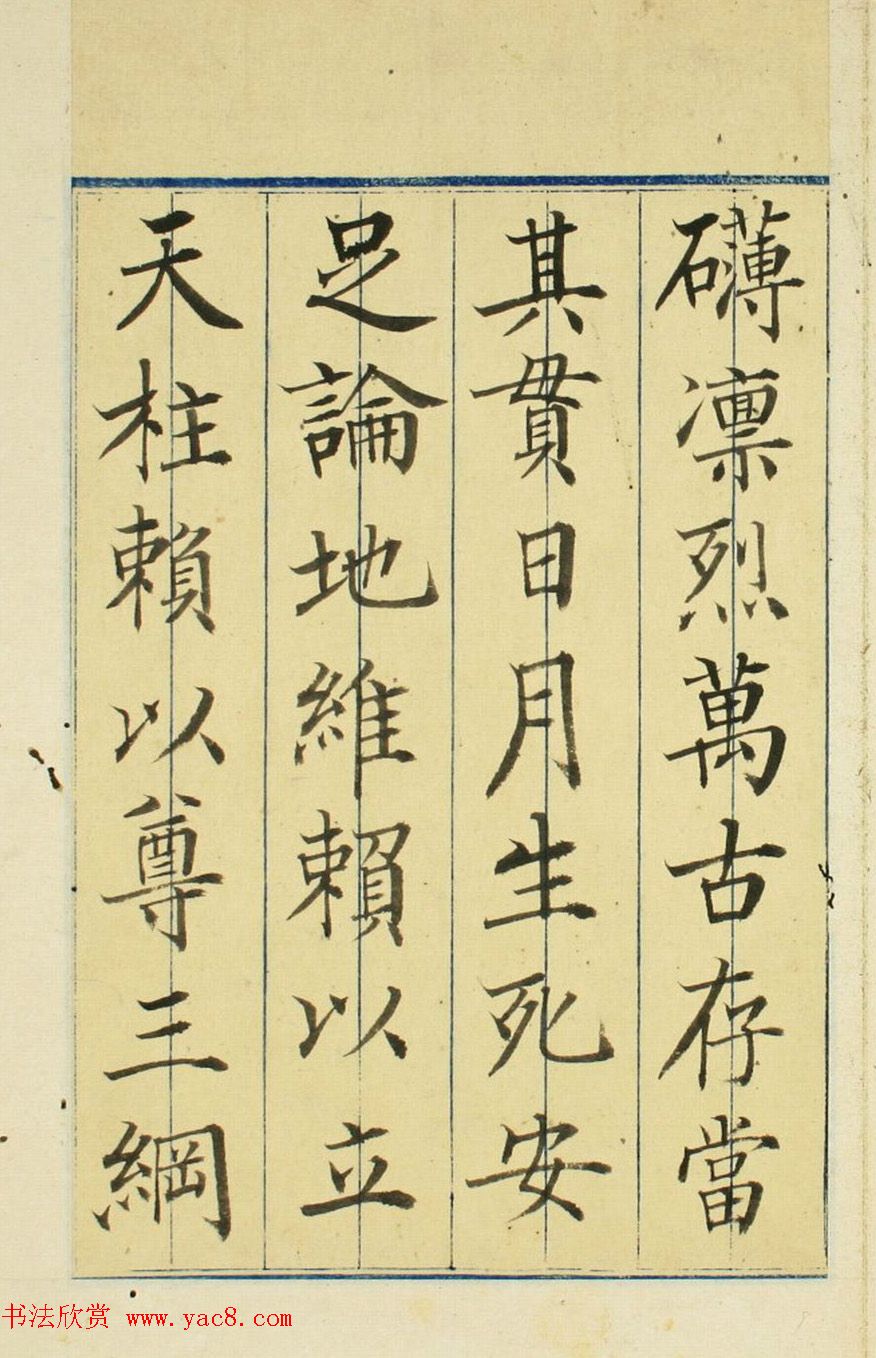 礴凛烈萬古存當
其貫日月生死安
足論地維賴以立
天柱賴以尊三綱
书法欣赏 www.yac8.com